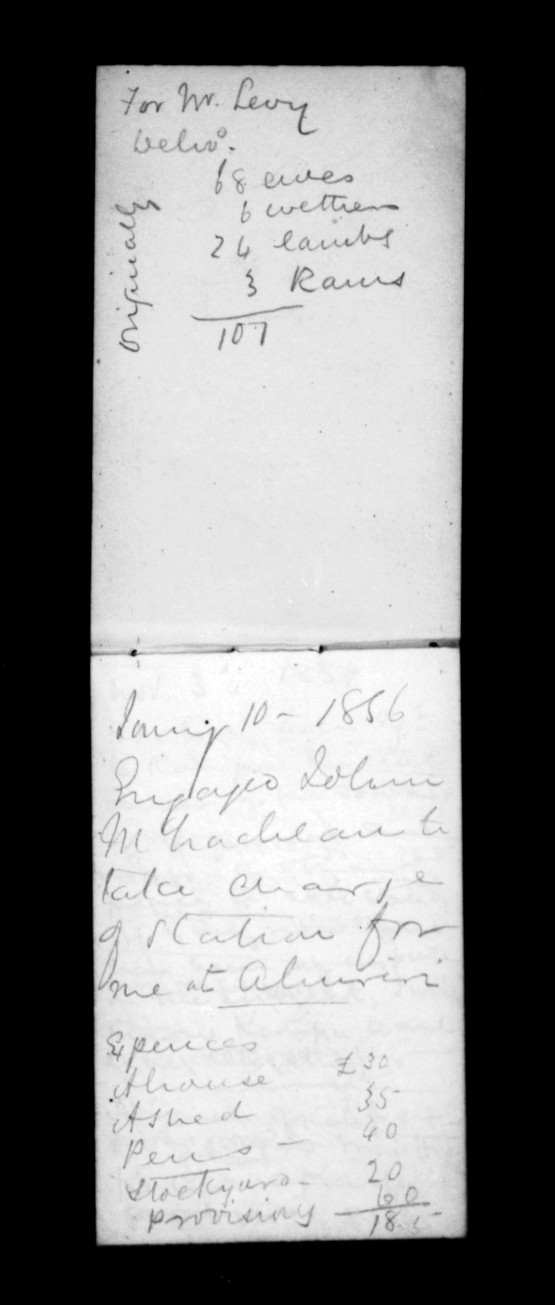 For Mr. Levy
Delivd.
Originally
68 ewes
6 wethers
24 lambs
3 Rams
107
Jany 10 - 1856
Engaged John
McLachlan to
take charge
of Station for
me at Ahuriri
Expences
A house £30
A Shed 35
Pens - 40
Stockyard - 20
provisions 60
185